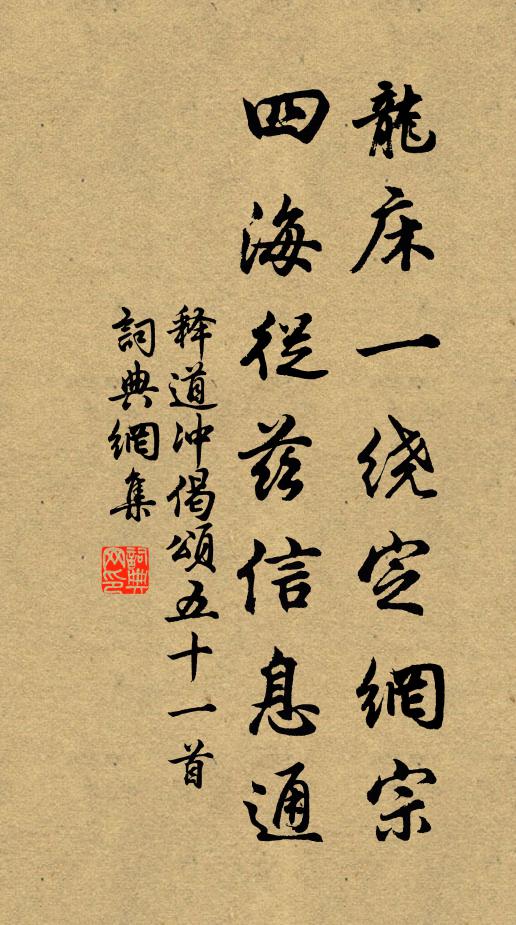 龍床一绕定網宗
四海從茲信息通
释道冲偈頌五十一首
詞典網集
詞典網印